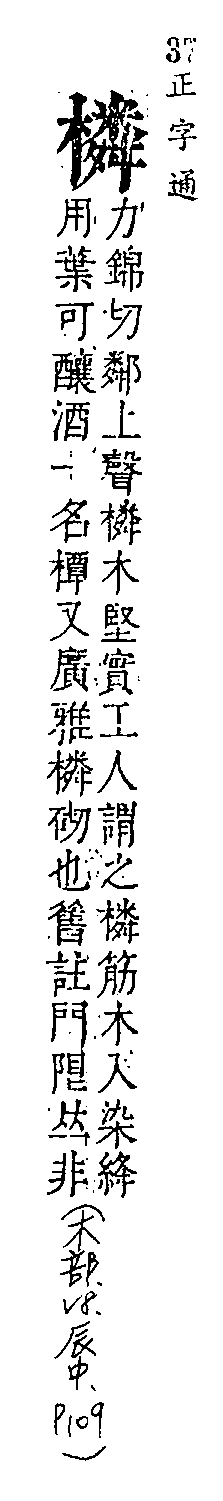 37 正字通
橉
力錦切鄰上聲橉木堅實工人謂之橉筋木入染絳
用葉可釀酒一名橝又廣雅橉砌也舊註門限𠀤非
(木部、V8、辰中、P109)